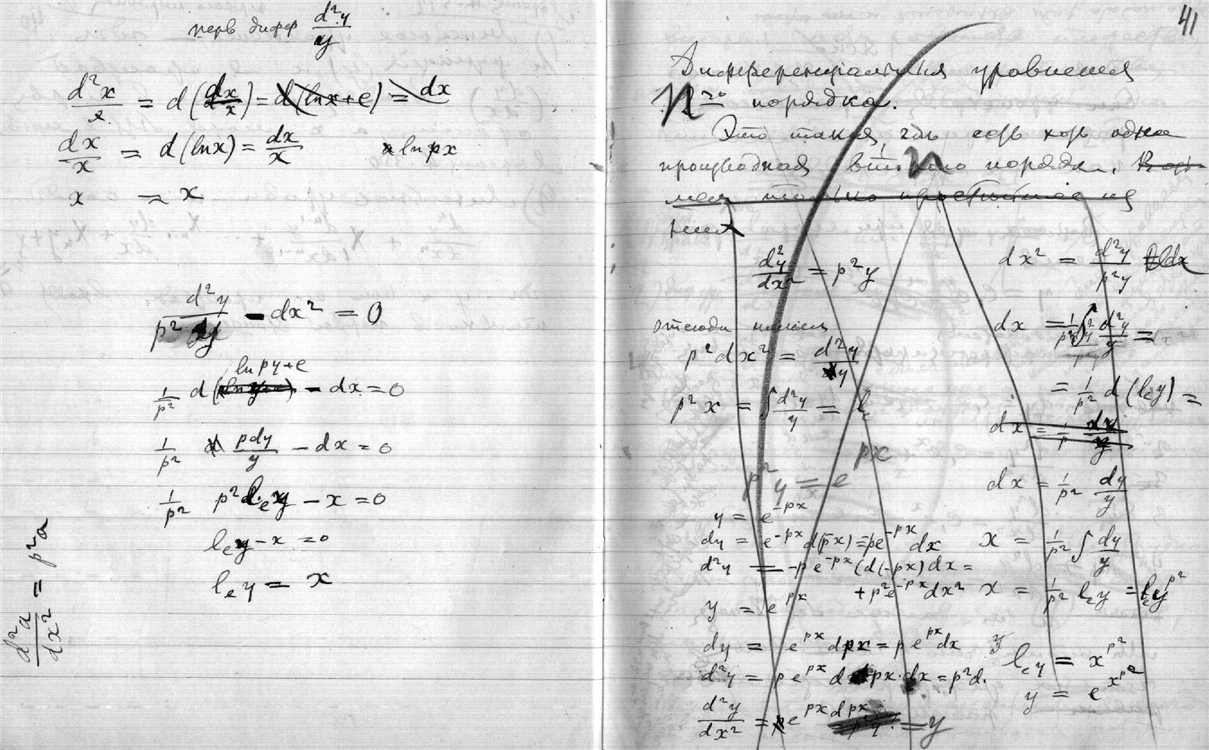 перв дифер d²y/y
d²x/x = d(dx/x) = d(lnx+e) = dx
dx/x = d(lnx) = dx/x ln px
x = x
d²y/p² dy - dx² = 0
ln py+e
1/p² d(ln y+e) - dx = 0
1/p² pdy/y - dx = 0
1/p² p² l_e y - x = 0
l_e y - x = 0
l_e y = x
d²a/dx² = p²a
41
Дифференциальныя уравнения
n го порядка.
Это такия где есть хоть одна
производная n порядка.
только простейшие из
них
d²y/dx² = p²y
отсюда
p²dx² = d²y/y
p²x = ∫d²y/y = l_e
p²y = e^px
y = e^-px
dy = e^-px d(px) = pe^-px dx
d²y = -pe^-px (d(-px)dx =
+p²e^-px dx²
y = e^px
dy = e^px dpx = pe^px dx
d²y = pe^px dpx·dx = p²d.
d²y/dx² = pe^px dpx = y
dx² = d²y/p²y
dx = 1/p² ∫d²y/y =
= 1/p² d(l_e y) =
dx = 1/p dx/y
dx = 1/p² dy/y
x = 1/p² ∫dy/y
x = 1/p² l_e y = l_e y^p²
l_e y = x^p²
y = e^x^p²